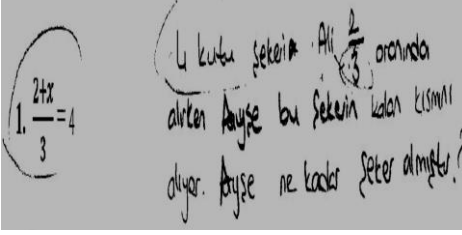 1. (2+x)/3 = 4
4 kutu şekerin Ali 2/3 oranında
alırken Ayşe bu şekerin kalan kısmını
alıyor. Ayşe ne kadar şeker almıştır?